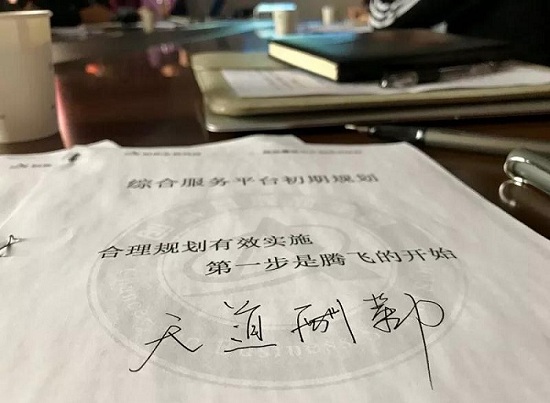 综合服务平台初期规划
合理规划有效实施
第一步是腾飞的开始
天道酬勤